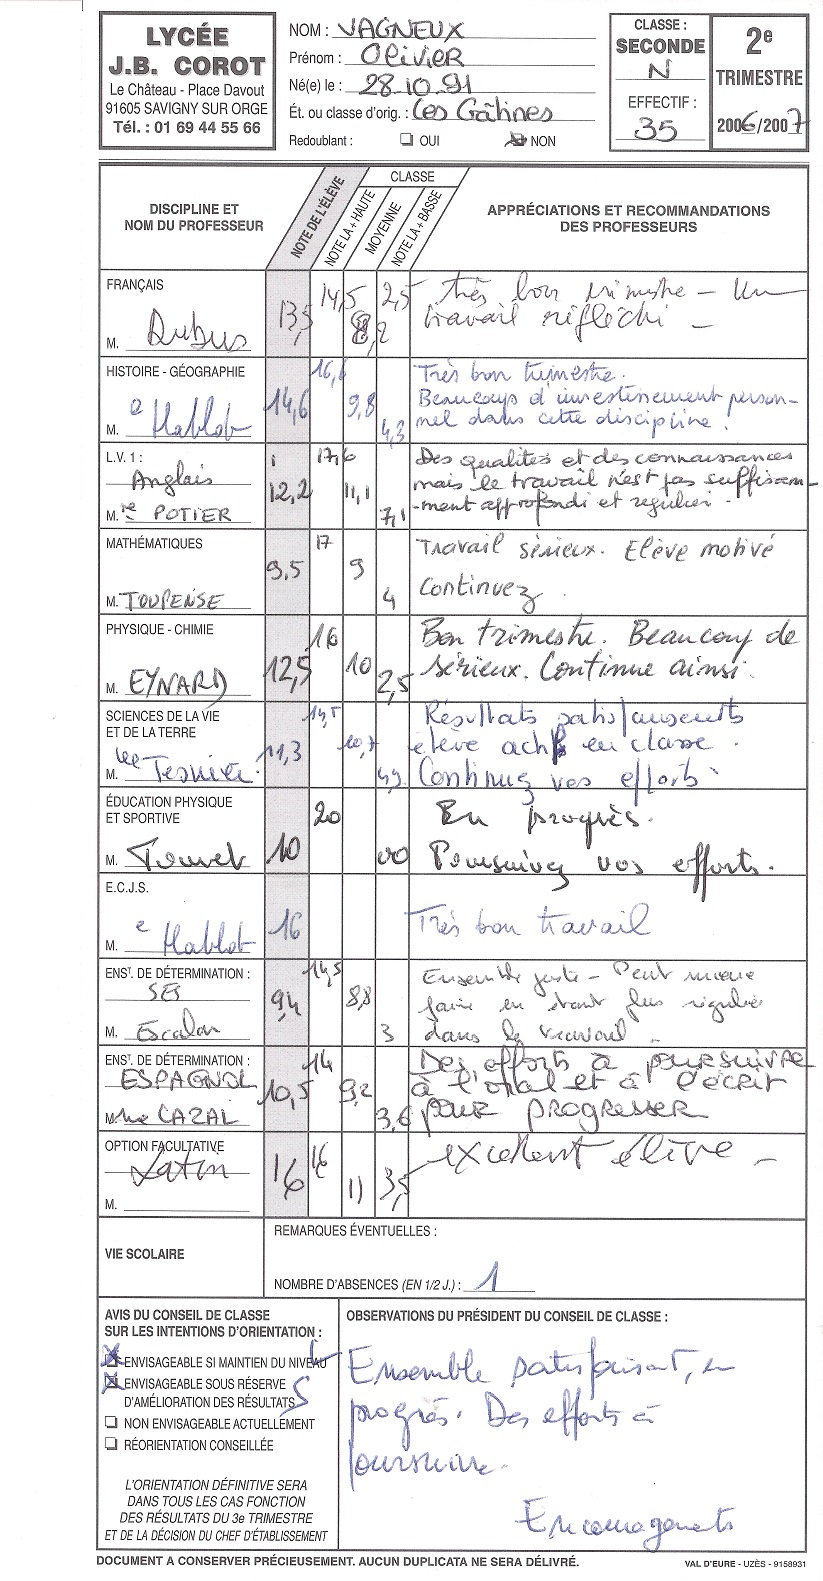 LYCÉE
J.B. COROT
Le Château - Place Davout
91605 SAVIGNY SUR ORGE
Tél. : 01 69 44 55 66
NOM : VAGNEUX
Prénom : Olivier
Né(e) le : 28.10.91
Ét. ou classe d'orig. : Les Gâtines
Redoublant : OUI NON
CLASSE :
SECONDE
N
EFFECTIF :
35
2e
TRIMESTRE
2006/2007
DISCIPLINE ET
NOM DU PROFESSEUR
NOTE DE L'ÉLÈVE
CLASSE
NOTE LA + HAUTE
MOYENNE
NOTE LA + BASSE
APPRÉCIATIONS ET RECOMMANDATIONS
DES PROFESSEURS
FRANÇAIS
M. Dubus
13,5 14,5 8,2 2,5
Très bon trimestre - Un
travail réfléchi -
HISTOIRE - GÉOGRAPHIE
M. e Hablot
14,6 16,6 9,8 4,3
Très bon trimestre.
Beaucoup d'investissement person-
nel dans cette discipline.
L.V. 1 :
Anglais
M. POTIER
12,2 17,6 11,1 7,1
Des qualités et des connaissances
mais le travail n'est pas suffisam-
-ment approfondi et régulier.
MATHÉMATIQUES
M. TOUPENSE
9,5 17 9 4
Travail sérieux. Elève motivé
Continuez
PHYSIQUE - CHIMIE
M. EYNARD
12,5 16 10 2,5
Bon trimestre. Beaucoup de
sérieux. Continue ainsi.
SCIENCES DE LA VIE
ET DE LA TERRE
M.
11,3 14,5 10,7 4,9
Résultats satisfaisants
élève actif en classe.
Continuez vos efforts.
ÉDUCATION PHYSIQUE
ET SPORTIVE
M.
10 20 00
En progrès.
Poursuivez vos efforts.
E.C.J.S.
M. e Hablot
16
Très bon travail
ENST. DE DÉTERMINATION :
SES
M. Escalon
9,4 14,5 8,8 3
Ensemble juste - Peut mieux
faire en étant plus régulier
dans le travail.
ENST. DE DÉTERMINATION :
ESPAGNOL
M. me CAZAL
10,5 14 9,2 3,6
Des efforts à poursuivre
à l'oral et à l'écrit
pour progresser
OPTION FACULTATIVE
Latin
M.
16 16 11 3,5
excellent élève -
VIE SCOLAIRE
REMARQUES ÉVENTUELLES :
NOMBRE D'ABSENCES (EN 1/2 J.) : 1
AVIS DU CONSEIL DE CLASSE
SUR LES INTENTIONS D'ORIENTATION :
ENVISAGEABLE SI MAINTIEN DU NIVEAU L
ENVISAGEABLE SOUS RÉSERVE
D'AMÉLIORATION DES RÉSULTATS S
NON ENVISAGEABLE ACTUELLEMENT
RÉORIENTATION CONSEILLÉE
L'ORIENTATION DÉFINITIVE SERA
DANS TOUS LES CAS FONCTION
DES RÉSULTATS DU 3e TRIMESTRE
ET DE LA DÉCISION DU CHEF D'ÉTABLISSEMENT
OBSERVATIONS DU PRÉSIDENT DU CONSEIL DE CLASSE :
Ensemble satisfaisant, en
progrès. Des efforts à
poursuivre.
Encouragements
DOCUMENT A CONSERVER PRÉCIEUSEMENT. AUCUN DUPLICATA NE SERA DÉLIVRÉ.
VAL D'EURE - UZÈS - 9158931